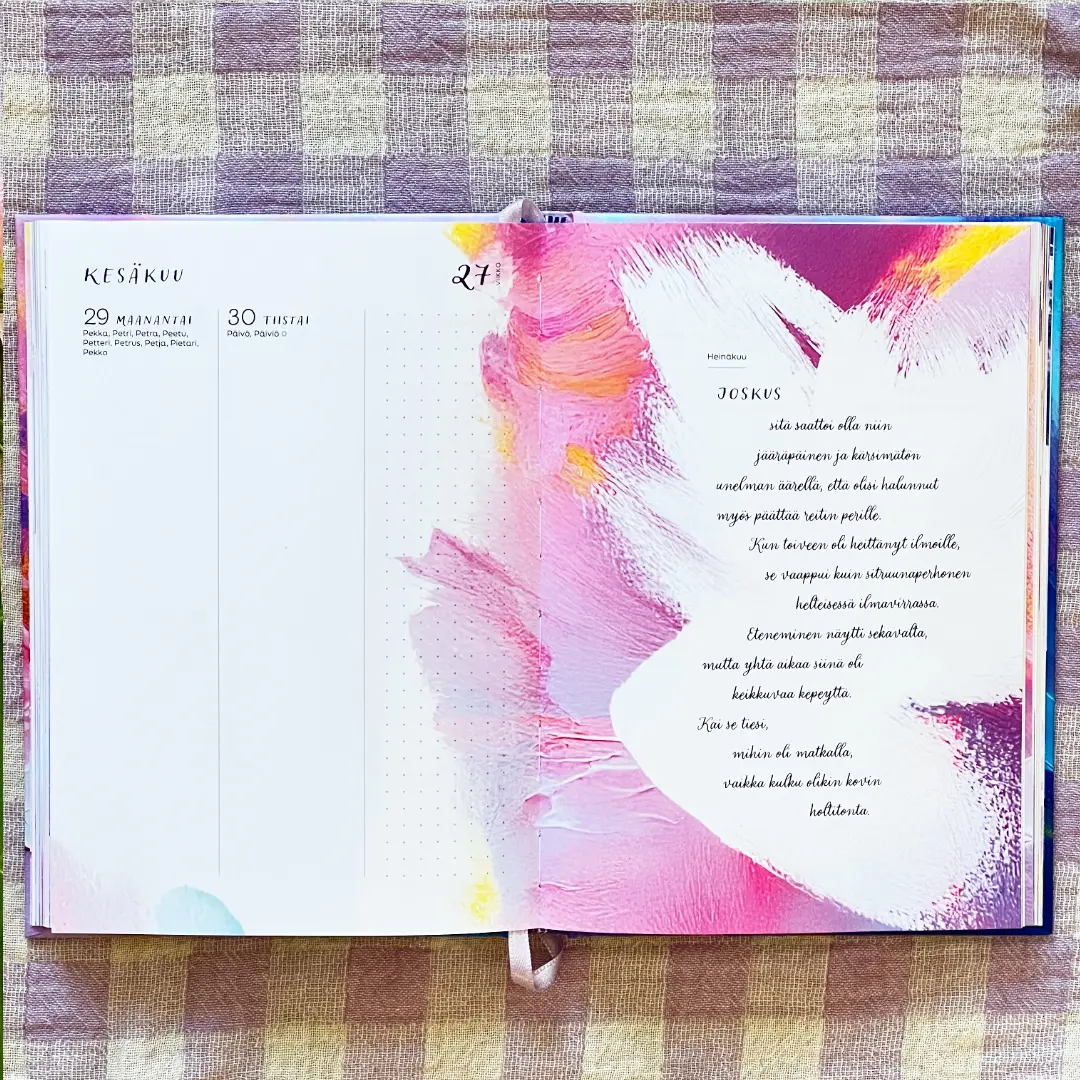 KESÄKUU
27 VIIKKO
29 MAANANTAI
Pekka, Petri, Petra, Peetu,
Petteri, Petrus, Petja, Pietari,
Pekko
30 TIISTAI
Päivö, Päiviö ○
Heinäkuu
JOSKUS
sitä saattoi olla niin
jääräpäinen ja kärsimätön
unelman äärellä, että olisi halunnut
myös päättää reitin perille.
Kun toiveen oli heittänyt ilmoille,
se vaappui kuin sitruunaperhonen
helteisessä ilmavirrassa.
Eteneminen näytti sekavalta,
mutta yhtä aikaa siinä oli
keikkuvaa kepeyttä.
Kai se tiesi,
mihin oli matkalla,
vaikka kulku olikin kovin
holtitonta.